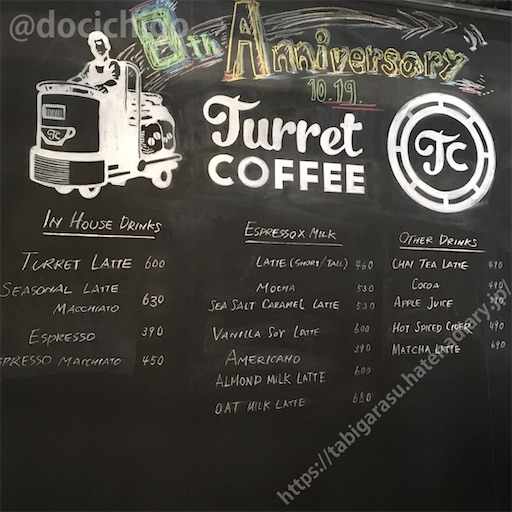 @docichoo
8th Anniversary
10.19.
Turret
COFFEE
TC
TC
IN HOUSE DRINKS
TURRET LATTE 600
SEASONAL LATTE
MACCHIATO 630
ESPRESSO 390
ESPRESSO MACCHIATO 450
ESPRESSO X MILK
LATTE (SHORT/TALL) 460
MOCHA 530
SEA SALT CARAMEL LATTE 530
VANILLA SOY LATTE 600
AMERICANO 390
ALMOND MILK LATTE 600
OAT MILK LATTE 680
OTHER DRINKS
CHAI TEA LATTE 490
COCOA 490
APPLE JUICE
HOT SPICED CIDER 490
MATCHA LATTE 690
https://tabigarasu.hatenadiary.jp/